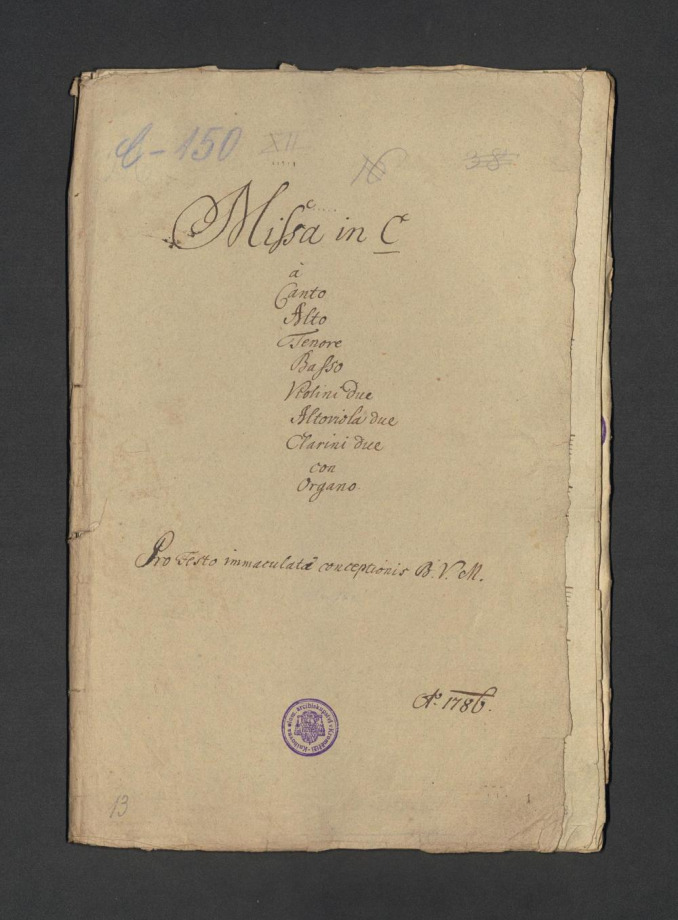 C-150 XII
N 38
Missa in C
à
Canto
Alto
Tenore
Basso
Violini due
Altoviola due
Clarini due
con
Organo.
Pro Festo immaculatæ conceptionis B. V. M.
Aº 1786.
13